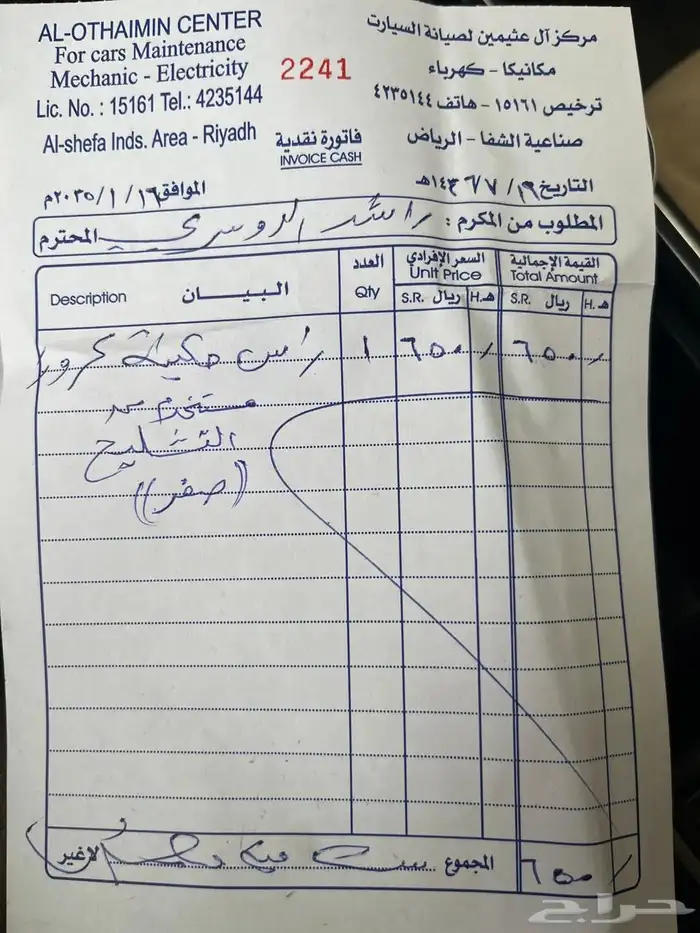 AL-OTHAIMIN CENTER
For cars Maintenance
Mechanic - Electricity
Lic. No. : 15161 Tel.: 4235144
Al-shefa Inds. Area - Riyadh
2241
فاتورة نقدية
INVOICE CASH
مركز آل عثيمين لصيانة السيارت
مكانيكا - كهرباء
ترخيص ١٥١٦١ - هاتف ٤٢٣٥١٤٤
صناعية الشفا - الرياض
التاريخ ١٩/٧/١٤٣٦هـ الموافق ١٩/١/٢٠٢٥م
المطلوب من المكرم : راشد الدوسري المحترم
البـيـــان Description
العدد Qty
السعر الإفرادي Unit Price
القيمة الإجمالية Total Amount
ريال S.R. هـ H.
ريال S.R. هـ H.
راس مكينة ١ ٦٥٠/ ٦٥٠/
مستخدم
التشليح
((صفر))
المجموع لاغير ٦٥٠/
حراج